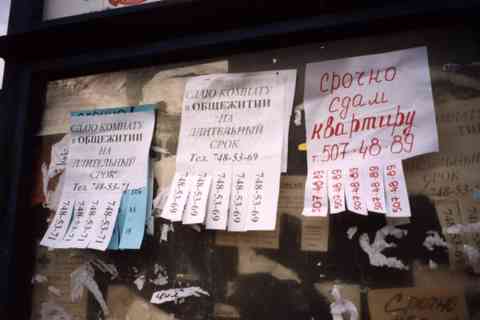 СДАЮ КОМНАТУ
в ОБЩЕЖИТИИ
НА
ДЛИТЕЛЬНЫЙ
СРОК
Тел. 748-53-71
748-53-71
748-53-71
748-53-71
748-53-71
СДАЮ КОМНАТУ
в ОБЩЕЖИТИИ
НА
ДЛИТЕЛЬНЫЙ
СРОК
Тел. 748-53-69
748-53-69
748-53-69
748-53-69
748-53-69
748-53-69
срочно
сдам
квартиру
т. 507-48-89
507-48-89
507-48-89
507-48-89
507-48-89
507-48-89
Срочно